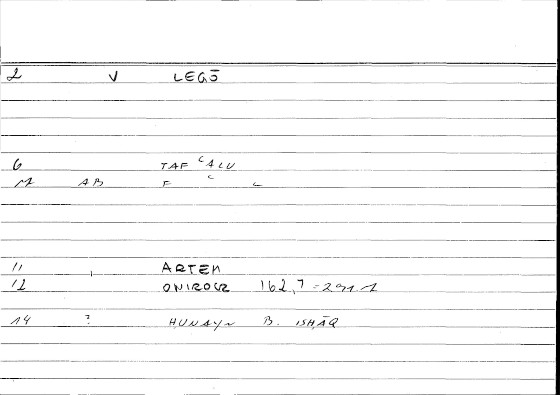 2 V LEGŌ
6 TAF ʿALU
11 AB F ʿ L
11 ARTEM
12 ONIROCR 162,7 = 291.1
14 ? HUNAYN B. ISHĀQ